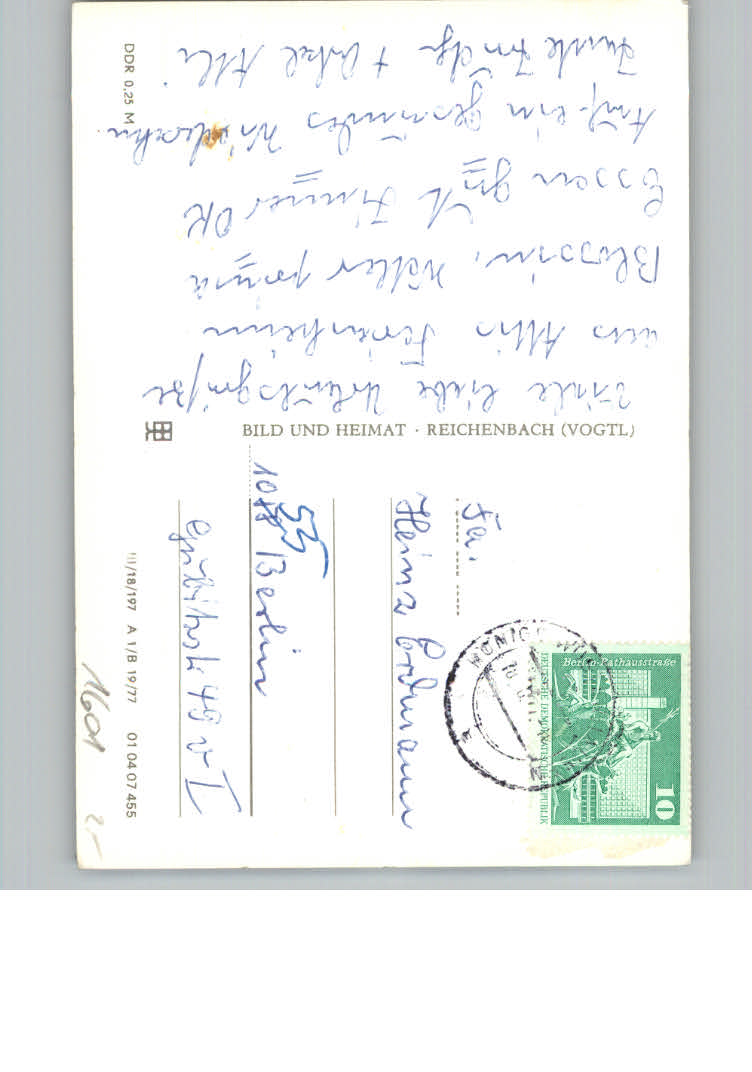 Viele liebe Urlaubsgrüße
aus Altis Ferienheim
Blossin, Wetter prima
Essen gut Zimmer OK
Auf ein gesundes Wiedersehn.
Tante + Onkel
DDR 0,25 M
BILD UND HEIMAT · REICHENBACH (VOGTL)
III/18/197 A 1/B 19/77 01 04 07 455
Fa.
Heinz Erdmann
Berlin
55
KÖNIGS WU
Berlin-Rathausstraße
DEUTSCHE DEMOKRATISCHE REPUBLIK
10
1601
2,-